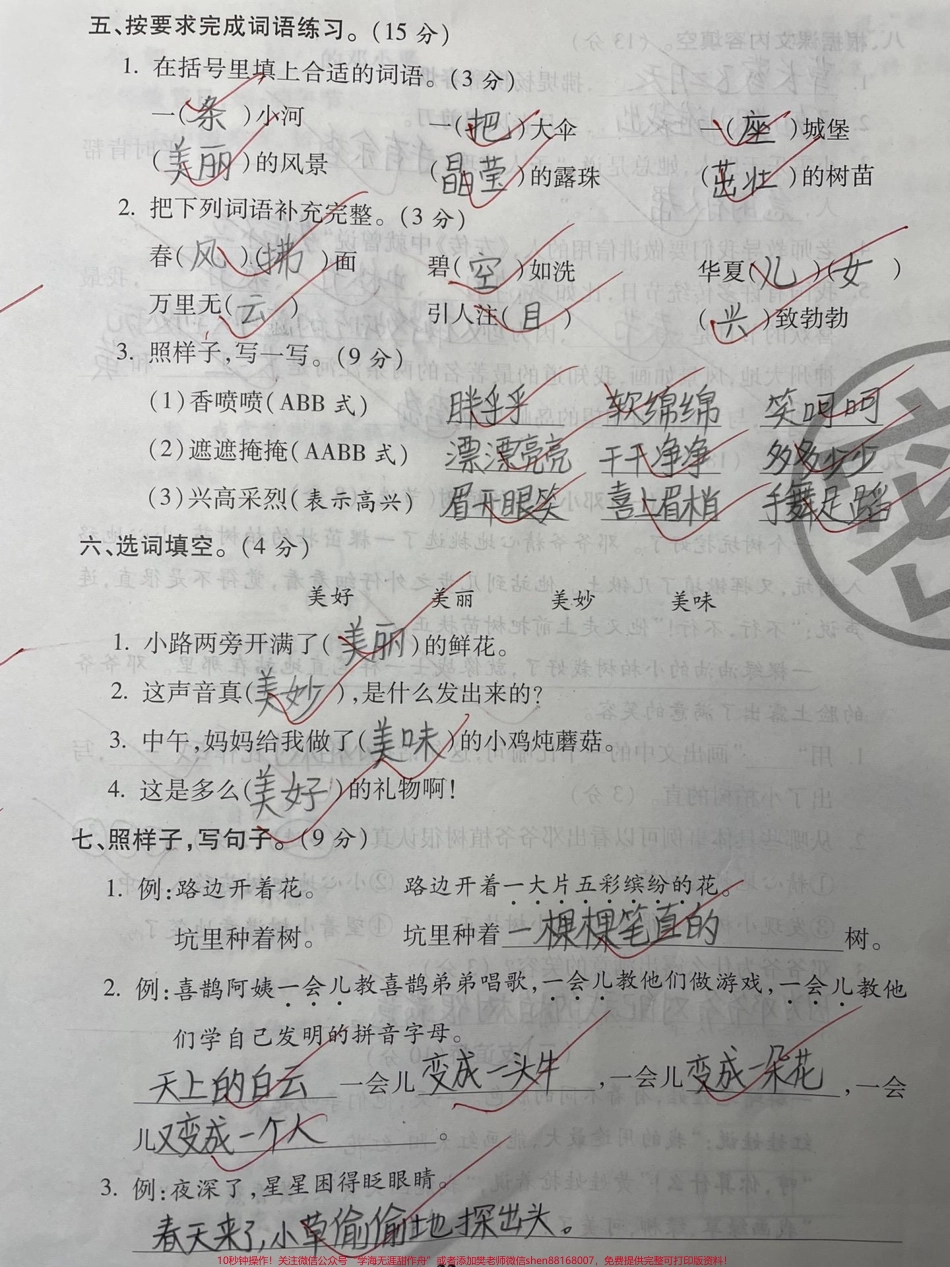 五、按要求完成词语练习。(15 分)
1. 在括号里填上合适的词语。(3 分)
一(条)小河 一(把)大伞 一(座)城堡
(美丽)的风景 (晶莹)的露珠 (茁壮)的树苗
2. 把下列词语补充完整。(3 分)
春(风)(拂)面 碧(空)如洗 华夏(儿)(女)
万里无(云) 引人注(目) (兴)致勃勃
3. 照样子,写一写。(9 分)
(1)香喷喷(ABB 式) 胖乎乎 软绵绵 笑呵呵
(2)遮遮掩掩(AABB 式) 漂漂亮亮 干干净净 多多少少
(3)兴高采烈(表示高兴) 眉开眼笑 喜上眉梢 手舞足蹈
六、选词填空。(4 分)
美好 美丽 美妙 美味
1. 小路两旁开满了(美丽)的鲜花。
2. 这声音真(美妙),是什么发出来的?
3. 中午,妈妈给我做了(美味)的小鸡炖蘑菇。
4. 这是多么(美好)的礼物啊!
七、照样子,写句子。(9 分)
1. 例:路边开着花。 路边开着一大片五彩缤纷的花。
坑里种着树。 坑里种着一棵棵笔直的树。
2. 例:喜鹊阿姨一会儿教喜鹊弟弟唱歌,一会儿教他们做游戏,一会儿教他
们学自己发明的拼音字母。
天上的白云一会儿变成一头牛,一会儿变成一朵花,一会
儿又变成一个人。
3. 例:夜深了,星星困得眨眼睛。
春天来了,小草偷偷地探出头。
10秒钟操作!关注微信公众号“学海无涯甜作舟”或者添加樊老师微信shen88168007,免费提供完整可打印版资料!